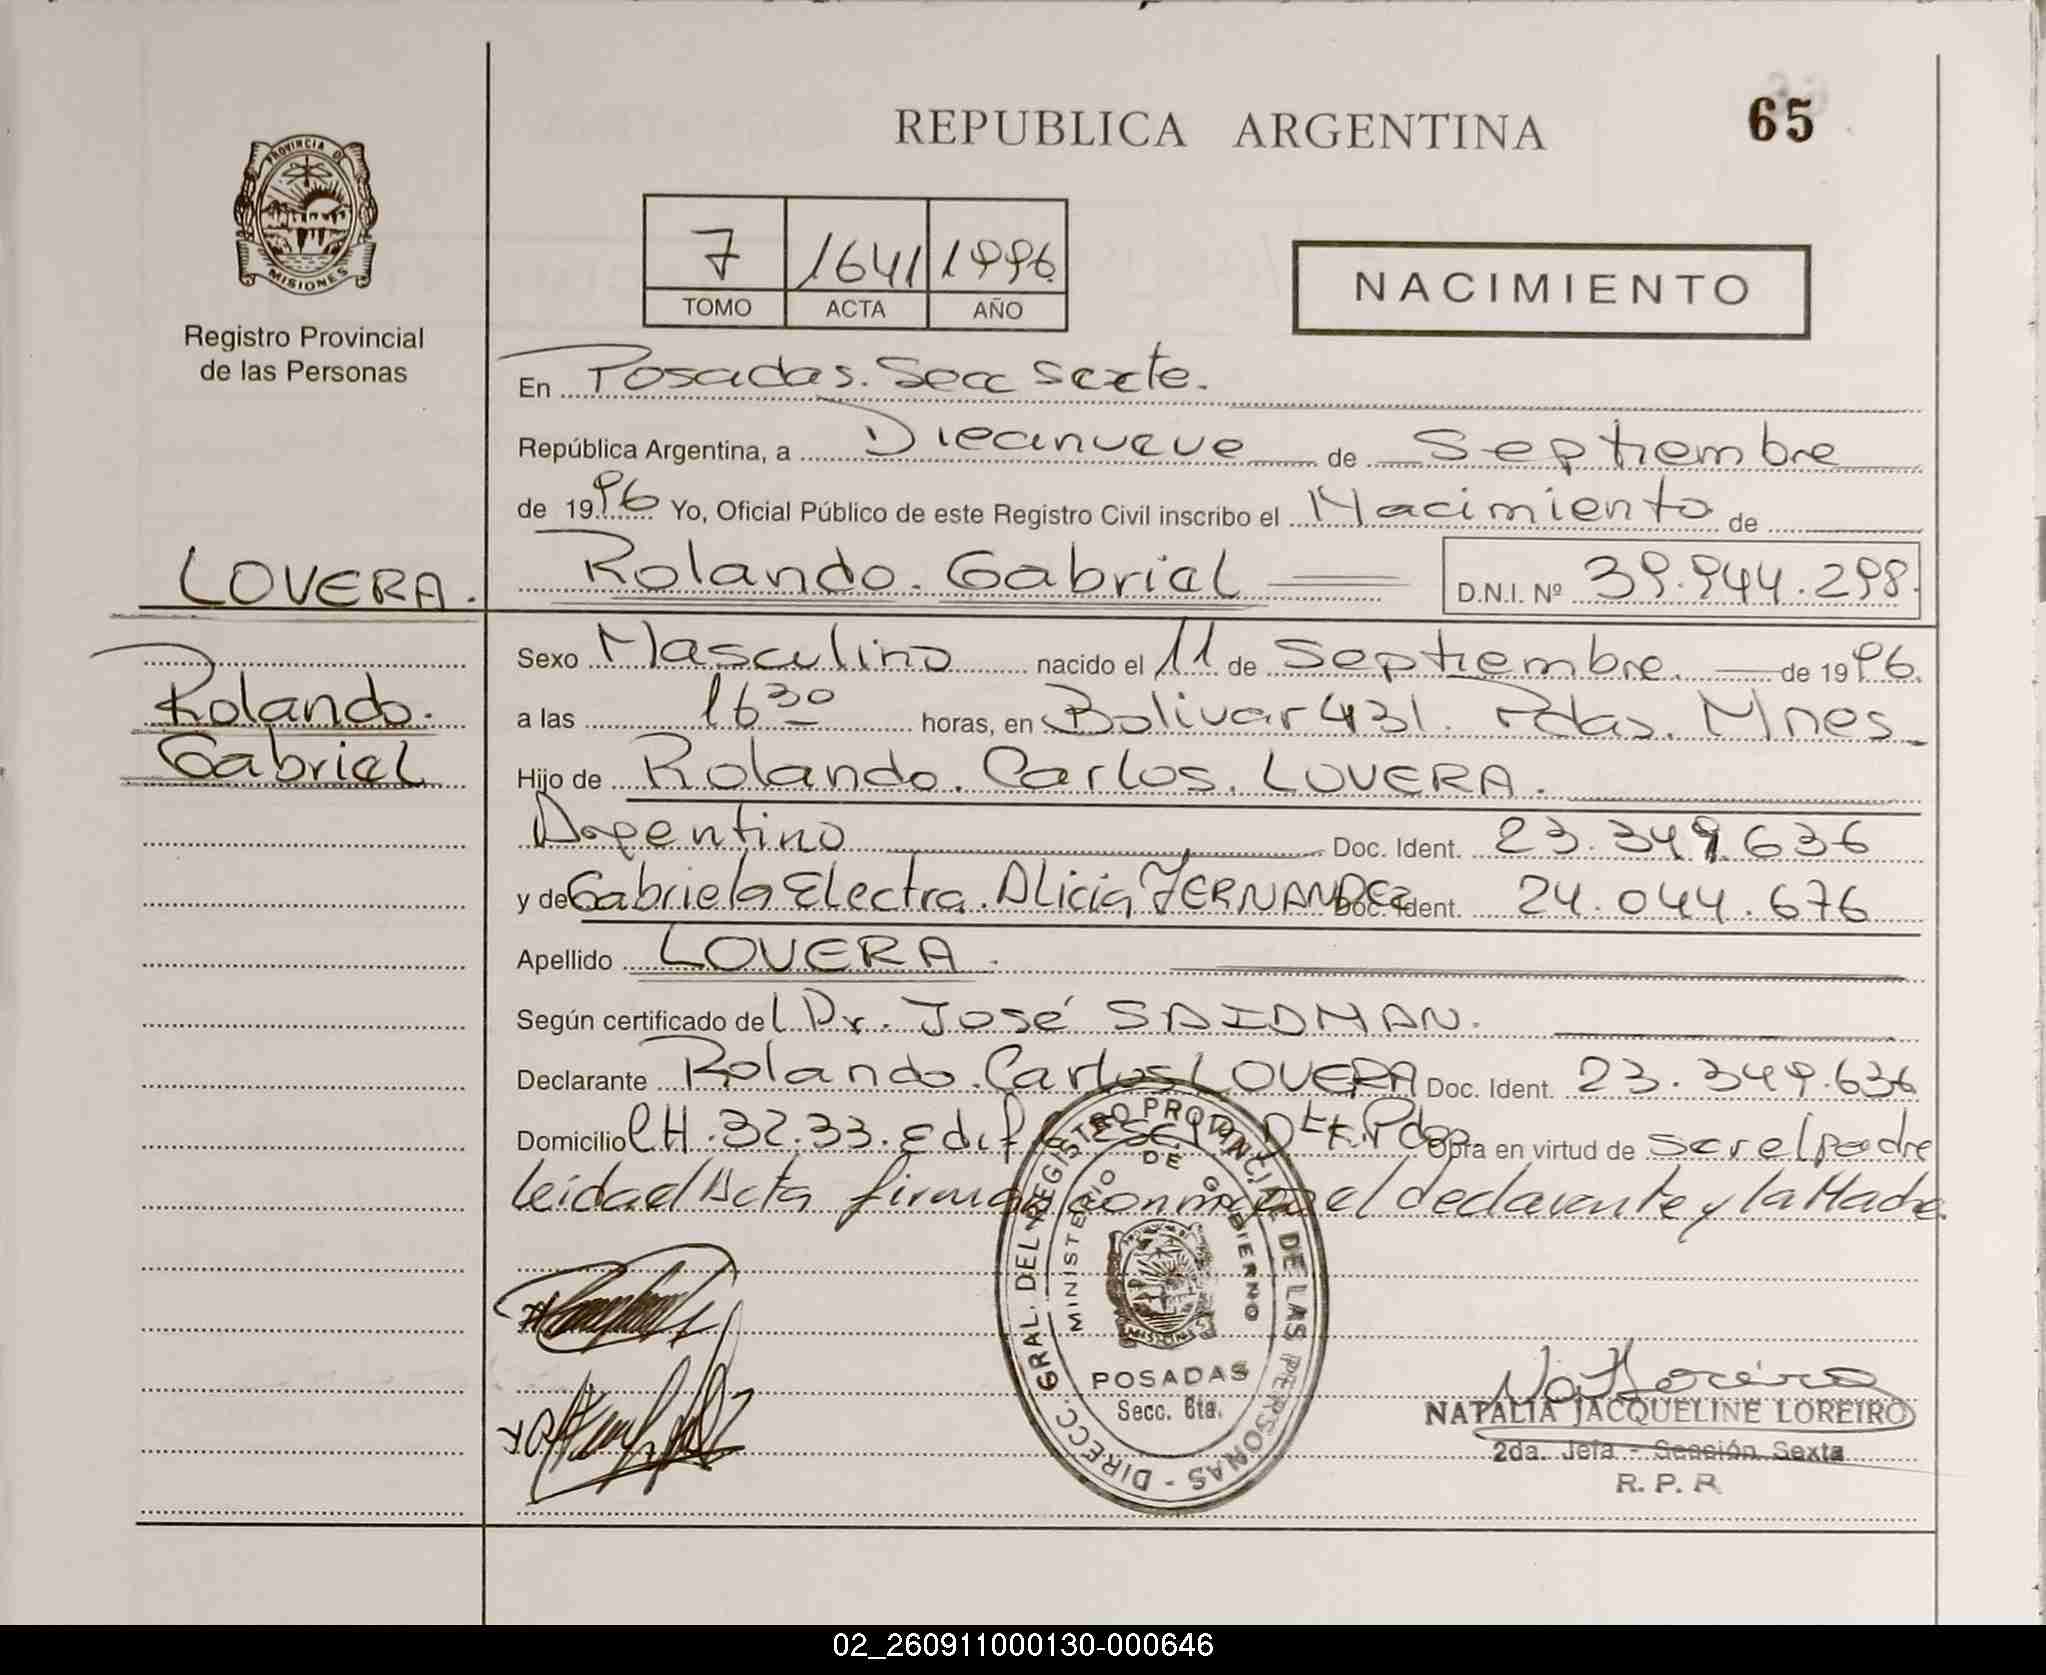 REPUBLICA ARGENTINA
65
PROVINCIA DE
MISIONES
Registro Provincial
de las Personas
7 1641 1996
TOMO ACTA AÑO
NACIMIENTO
En Posadas. Secc Sexta.
República Argentina, a Diecinueve de Septiembre
de 1996 Yo, Oficial Público de este Registro Civil inscribo el Nacimiento de
LOVERA.
Rolando. Gabriel D.N.I. Nº 39.944.298.
Rolando.
Gabriel
Sexo Masculino nacido el 11 de Septiembre. de 1996.
a las 16 30 horas, en Bolivar 431. Pdas. Mnes
Hijo de Rolando. Carlos. LOVERA.
Argentino Doc. Ident. 23.349.636
y de Gabriela Electra. Alicia FERNANDEZ Doc. Ident. 24.044.676
Apellido LOVERA.
Según certificado del Dr. José SAIDMAN.
Declarante Rolando. Carlos LOVERA Doc. Ident. 23.349.636
Domicilio CH. 32.33. Edif. Pdas Obra en virtud de ser el padre
leida el Acta firman conmigo el declarante y la Madre.
DIRECC. GRAL. DEL REGISTRO PROVINCIAL DE LAS PERSONAS -
MINISTERIO DE GOBIERNO
MISIONES
POSADAS
Secc. 6ta.
NATALIA JACQUELINE LOREIRO
2da. Jefa - Sección Sexta
R. P. P.
02_260911000130-000646